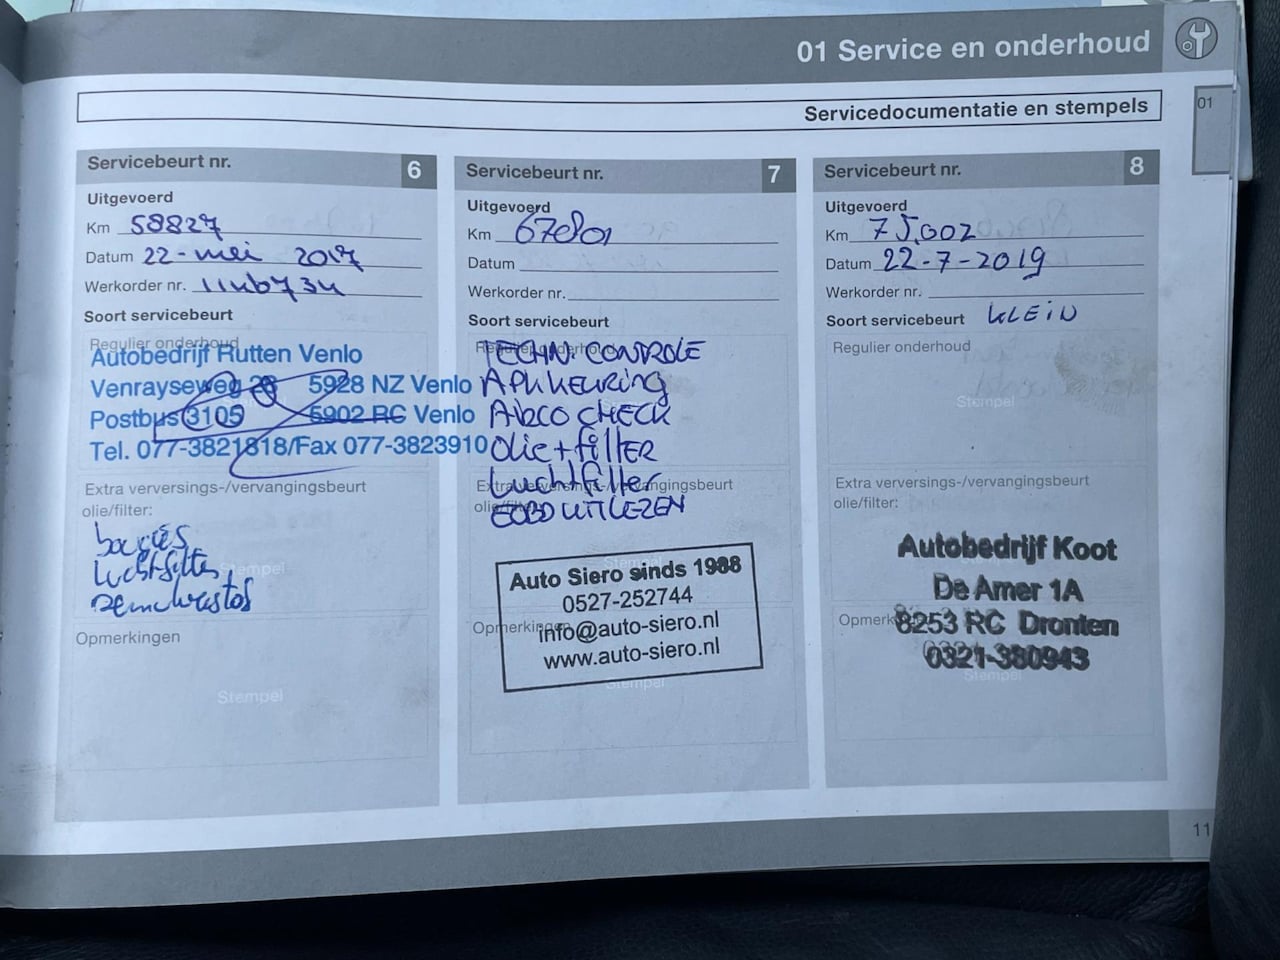 01 Service en onderhoud
01
Servicedocumentatie en stempels
Servicebeurt nr. 6
Uitgevoerd
Km 58827
Datum 22-mei 2017
Werkorder nr.
Soort servicebeurt
Regulier onderhoud
Autobedrijf Rutten Venlo
Venrayseweg 5928 NZ Venlo
Postbus 3105 5902 RC Venlo
Tel. 077-3821818/Fax 077-3823910
Stempel
Extra verversings-/vervangingsbeurt
olie/filter:
bougies
luchtfilter
remvloeistof
Stempel
Opmerkingen
Stempel
Servicebeurt nr. 7
Uitgevoerd
Km 67801
Datum
Werkorder nr.
Soort servicebeurt
Regulier onderhoud
TECHN. CONTROLE
APK KEURING
AIRCO CHECK
Olie + filTER
Luchtfilter
Extra verversings-/vervangingsbeurt
olie/filter:
EOBD UITLEZEN
Auto Siero sinds 1988
0527-252744
Opmerkingen
info@auto-siero.nl
www.auto-siero.nl
Stempel
Servicebeurt nr. 8
Uitgevoerd
Km 75.002
Datum 22-7-2019
Werkorder nr.
Soort servicebeurt KLEIN
Regulier onderhoud
Stempel
Extra verversings-/vervangingsbeurt
olie/filter:
Autobedrijf Koot
De Amer 1A
Opmerk
8253 RC Dronten
0321-380943
Stempel
11